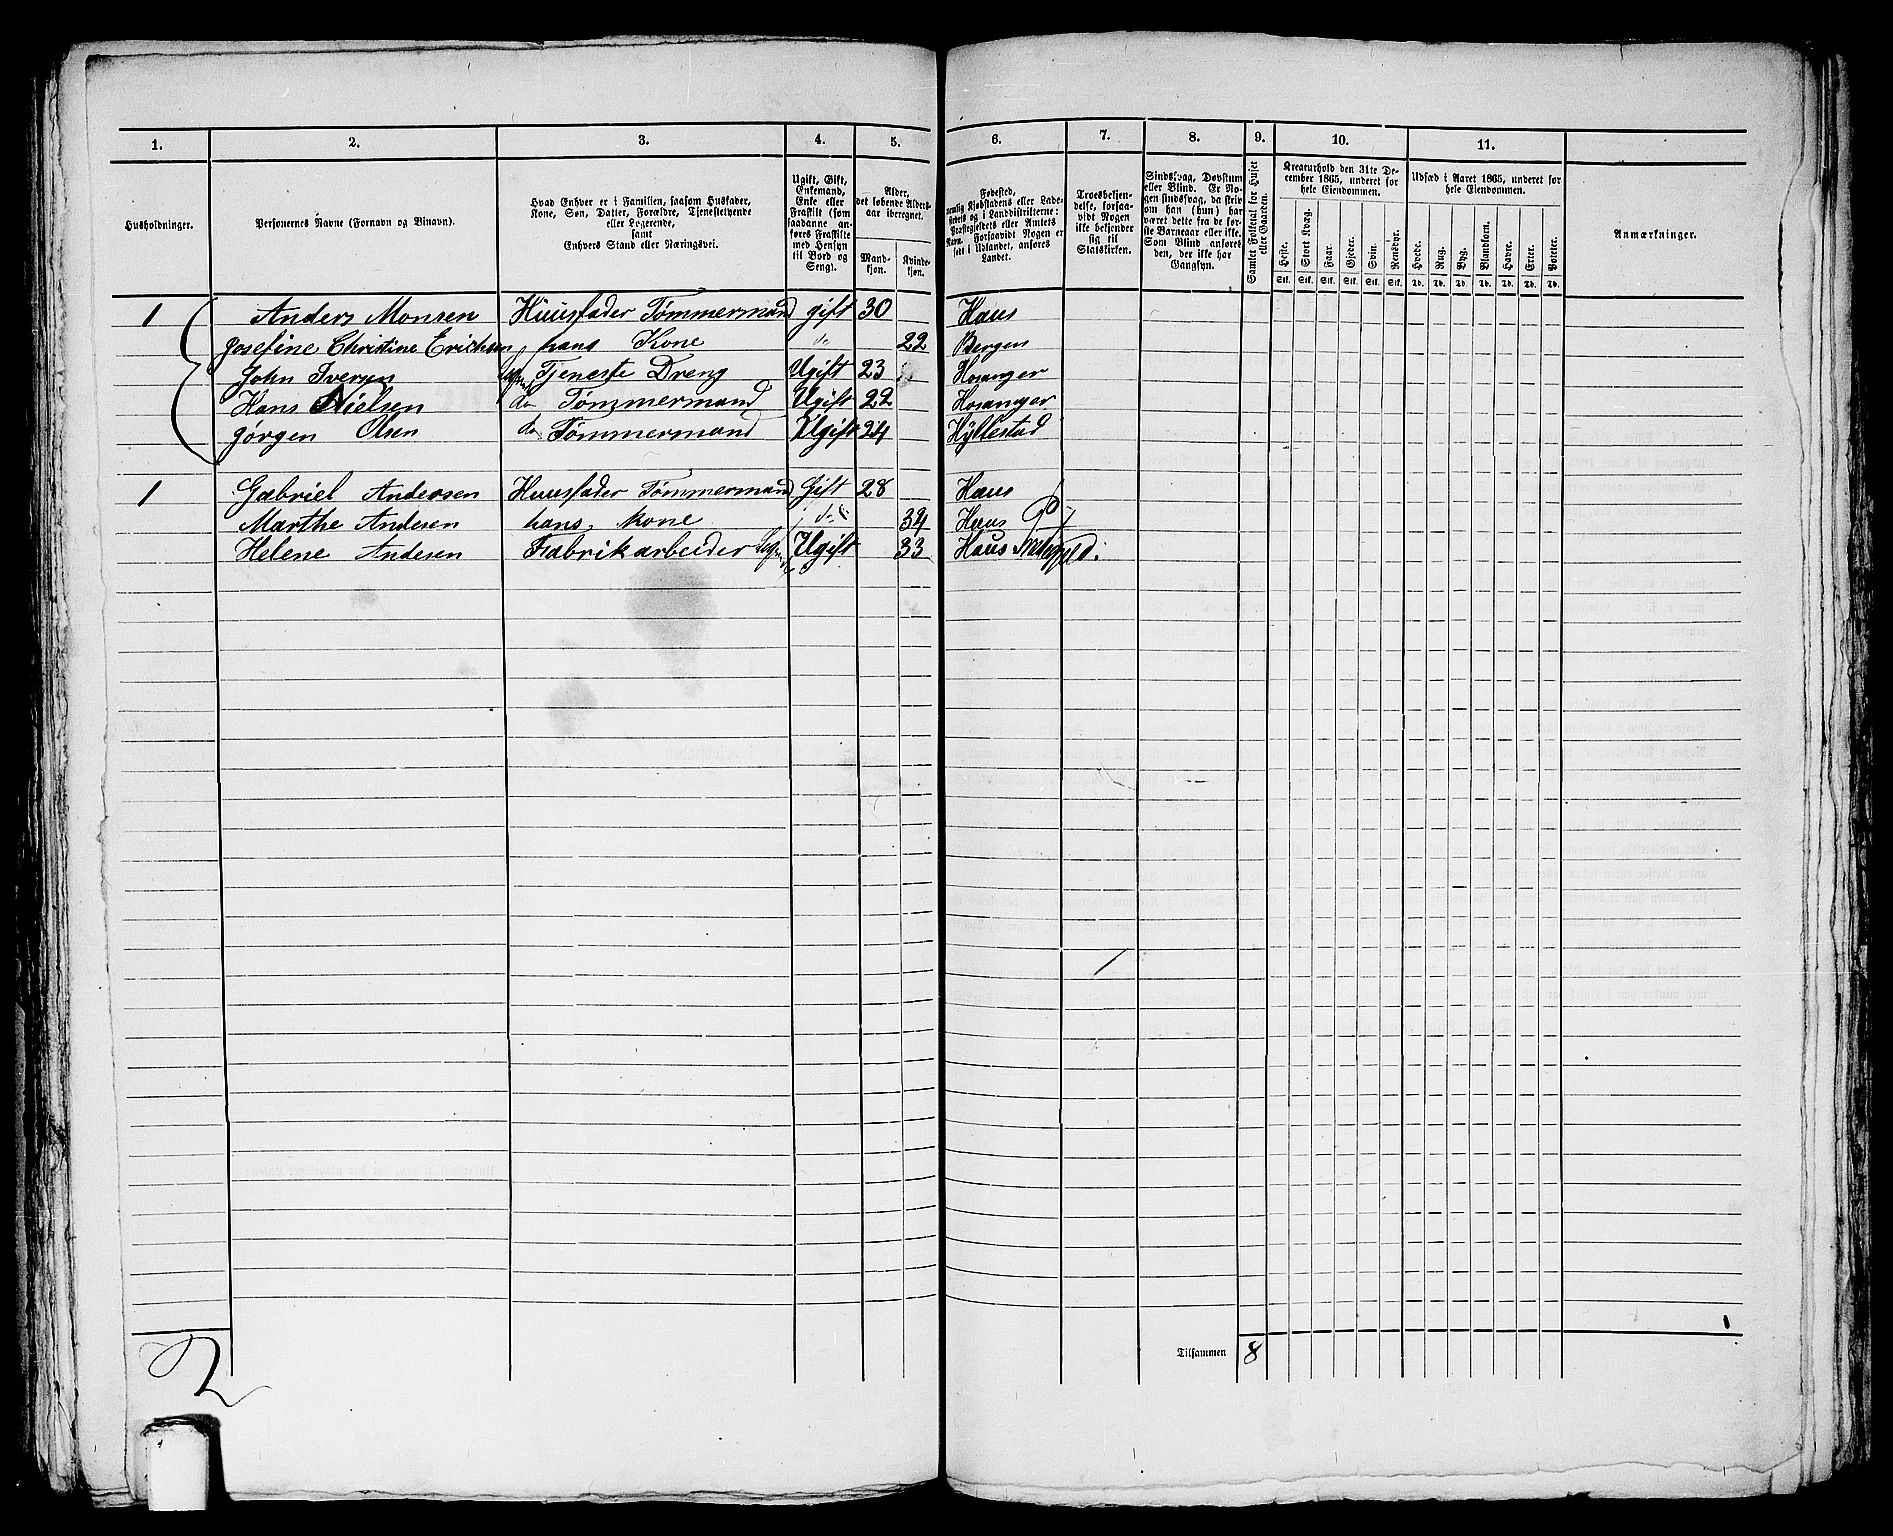 1. 2. 3. 4. 5. 6. 7. 8. 9. 10. 11.
Husholdninger.
Personernes Navne (Fornavn og Binavn).
Hvad Enhver er i Familien, saasom Husfader,
Kone, Søn, Datter, Forældre, Tjenestetyende
eller Logerende,
samt
Enhvers Stand eller Næringsvei.
Ugift, Gift,
Enkemand,
Enke eller
Fraskilt (som
saadanne an-
føres Fraskilte
med Hensyn
til Bord og
Seng).
Alder,
det løbende Alders-
aar iberegnet.
Mand-
kjøn.
Kvinde-
kjøn.
Fødested,
nemlig Kjøbstadens eller Lade-
stedets og i Landdistrikterne:
Præstegjeldets eller Amtets
Navn. Forsaavidt Nogen er
født i Udlandet, anføres
Landet.
Troesbekjen-
delse, forsaa-
vidt Nogen
ikke bekjender
sig til
Statskirken.
Sindssvag, Døvstum
eller Blind. Er No-
gen sindssvag, da skriv
om han (hun) har
været dette fra de før-
ste Barneaar eller ikke.
Som Blind anføres
den, der ikke har
Gangsyn.
Samlet Folketal for Huset
eller Gaarden.
Kreaturhold den 31te De-
cember 1865, underet for
hele Eiendommen.
Heste. Stort Kvæg. Faar. Gjeder. Svin. Rensdyr.
Stk. Stk. Stk. Stk. Stk. Stk.
Udsæd i Aaret 1865, underet for
hele Eiendommen.
Hvede. Rug. Byg. Blandkorn. Havre. Erter. Poteter.
Td. Td. Td. Td. Td. Td. Td.
Anmærkninger.
1 Anders Monsen Huusfader Tømmermand gift 30 Haus
Josefine Christine Erichsen hans Kone do 22 Bergen
John Iversen Tjeneste Dreng Ugift 23 Hosanger
Hans Nielsen do Tømmermand Ugift 22 Hosanger
Jørgen Olsen do Tømmermand Ugift 24 Hyllestad
1 Gabriel Andersen Huusfader Tømmermand Gift 28 Haus
Marthe Andersen hans kone do 34 Haus
Helene Andersen Fabrikarbeider Ugift 33 Haus
Tilsammen 8
2